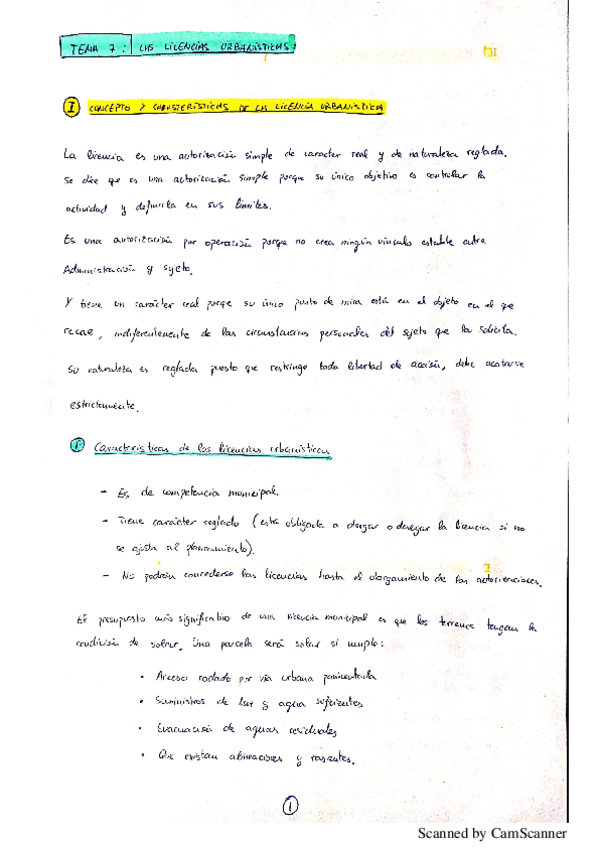 TEMA 7: LAS LICENCIAS URBANÍSTICAS
I CONCEPTO Y CARACTERÍSTICAS DE LA LICENCIA URBANÍSTICA
La licencia es una autorización simple de caracter real y de naturaleza reglada.
Se dice que es una autorización simple porque su único objetivo es controlar la
actividad y definirla en sus límites.
Es una autorización por operación porque no crea ningún vínculo estable entre
Administración y sujeto.
Y tiene un carácter real porque su único punto de mira está en el objeto en el que
recae, indiferentemente de las circunstancias personales del sujeto que la solicita.
Su naturaleza es reglada puesto que restringe toda libertad de acción, debe acatarse
estrictamente.
Características de las licencias urbanísticas
- Es de competencia municipal.
- Tiene carácter reglado (está obligada a otorgar o denegar la licencia si no
se ajusta al planeamiento).
- No podrán concederse las licencias hasta el otorgamiento de las autorizaciones.
El presupuesto más significativo de una licencia municipal es que los terrenos tengan la
condición de solar. Una parcela será solar si cumple:
• Acceso rodado por vía urbana pavimentada
• Suministros de luz y agua suficientes
• Evacuación de aguas residuales
• Que existan alineaciones y rasantes.
1
Scanned by CamScanner